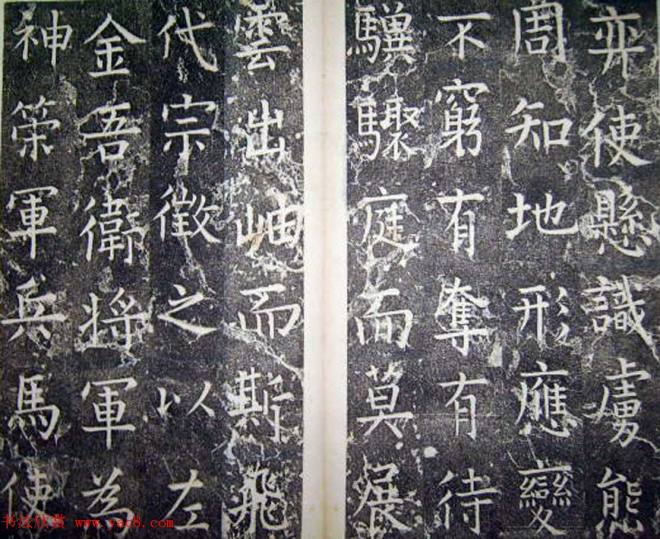 弈使懸識虜態
周知地形應變
不窮有奪有待
驥驟庭而莫展
雲出岫而斯飛
代宗徵之以左
金吾衛將軍為
神策軍兵馬使
书法欣赏 www.yac8.com